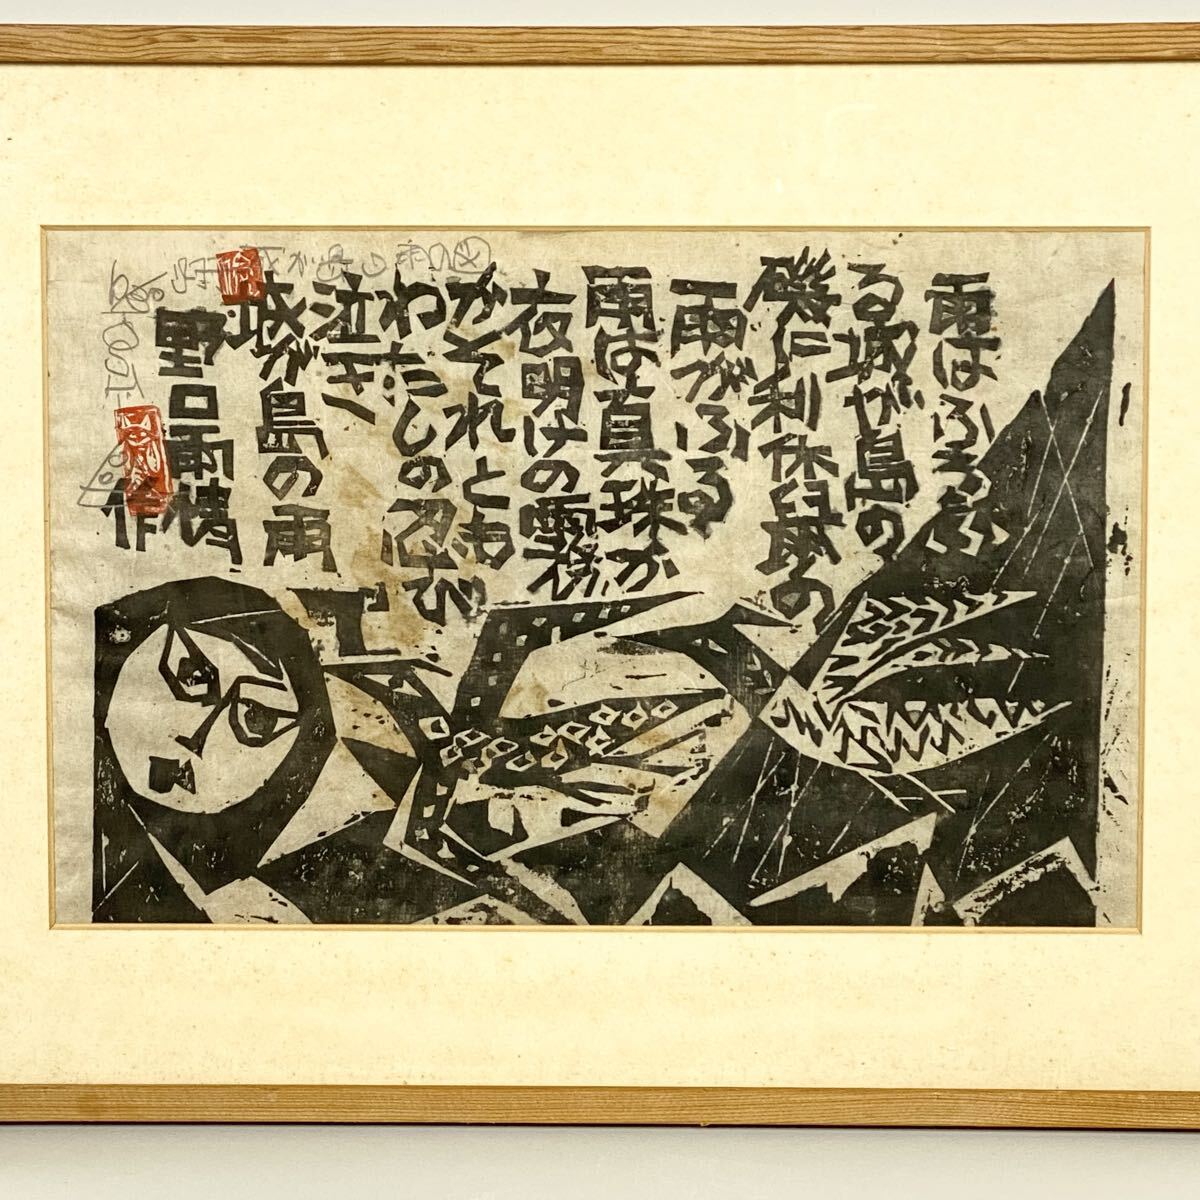 雨はふるふ
る城が島の
磯に利休鼠の
雨がふる
雨は真珠か
夜明けの霧
かそれとも
わたしの忍び
泣き
城が島の雨
野口雨情
作
城が島の雨の図